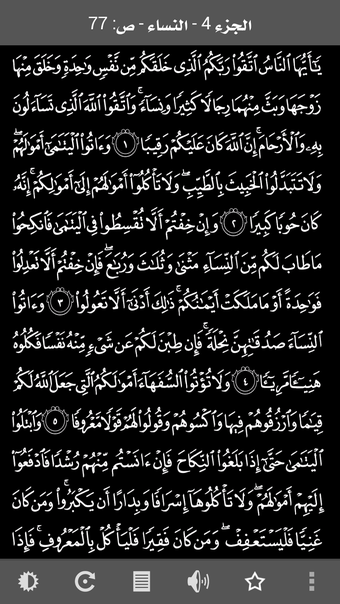 الجزء 4 - النساء - ص: 77
يَٰٓأَيُّهَا ٱلنَّاسُ ٱتَّقُوا۟ رَبَّكُمُ ٱلَّذِى خَلَقَكُم مِّن نَّفْسٍ وَٰحِدَةٍ وَخَلَقَ مِنْهَا
زَوْجَهَا وَبَثَّ مِنْهُمَا رِجَالًا كَثِيرًا وَنِسَآءً ۚ وَٱتَّقُوا۟ ٱللَّهَ ٱلَّذِى تَسَآءَلُونَ
بِهِۦ وَٱلْأَرْحَامَ ۚ إِنَّ ٱللَّهَ كَانَ عَلَيْكُمْ رَقِيبًا ١ وَءَاتُوا۟ ٱلْيَتَٰمَىٰٓ أَمْوَٰلَهُمْ ۖ
وَلَا تَتَبَدَّلُوا۟ ٱلْخَبِيثَ بِٱلطَّيِّبِ ۖ وَلَا تَأْكُلُوٓا۟ أَمْوَٰلَهُمْ إِلَىٰٓ أَمْوَٰلِكُمْ ۚ إِنَّهُۥ
كَانَ حُوبًا كَبِيرًا ٢ وَإِنْ خِفْتُمْ أَلَّا تُقْسِطُوا۟ فِى ٱلْيَتَٰمَىٰ فَٱنكِحُوا۟
مَا طَابَ لَكُم مِّنَ ٱلنِّسَآءِ مَثْنَىٰ وَثُلَٰثَ وَرُبَٰعَ ۖ فَإِنْ خِفْتُمْ أَلَّا تَعْدِلُوا۟
فَوَٰحِدَةً أَوْ مَا مَلَكَتْ أَيْمَٰنُكُمْ ۚ ذَٰلِكَ أَدْنَىٰٓ أَلَّا تَعُولُوا۟ ٣ وَءَاتُوا۟
ٱلنِّسَآءَ صَدُقَٰتِهِنَّ نِحْلَةً ۚ فَإِن طِبْنَ لَكُمْ عَن شَىْءٍ مِّنْهُ نَفْسًا فَكُلُوهُ
هَنِيٓـًٔا مَّرِيٓـًٔا ٤ وَلَا تُؤْتُوا۟ ٱلسُّفَهَآءَ أَمْوَٰلَكُمُ ٱلَّتِى جَعَلَ ٱللَّهُ لَكُمْ
قِيَٰمًا وَٱرْزُقُوهُمْ فِيهَا وَٱكْسُوهُمْ وَقُولُوا۟ لَهُمْ قَوْلًا مَّعْرُوفًا ٥ وَٱبْتَلُوا۟
ٱلْيَتَٰمَىٰ حَتَّىٰٓ إِذَا بَلَغُوا۟ ٱلنِّكَاحَ فَإِنْ ءَانَسْتُم مِّنْهُمْ رُشْدًا فَٱدْفَعُوٓا۟
إِلَيْهِمْ أَمْوَٰلَهُمْ ۖ وَلَا تَأْكُلُوهَآ إِسْرَافًا وَبِدَارًا أَن يَكْبَرُوا۟ ۚ وَمَن كَانَ
غَنِيًّا فَلْيَسْتَعْفِفْ ۖ وَمَن كَانَ فَقِيرًا فَلْيَأْكُلْ بِٱلْمَعْرُوفِ ۚ فَإِذَا